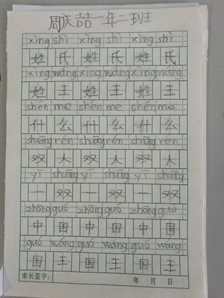 周庆喆一年二班
xìng shì xìng shì
姓 氏 姓 氏
xìng wáng xìng wáng xìng wáng
姓 王 姓 王
shén me shén me shén me
什 么 什 么
shuāng rén shuāng rén shuāng rén
双 人 双 人
yī shuāng yī shuāng
一 双 一 双
zhōng guó zhōng guó zhōng guó
中 国 中 国 中 国
guó wáng guó wáng guó wáng
国 王 国 王
家长签字： 年 月 日